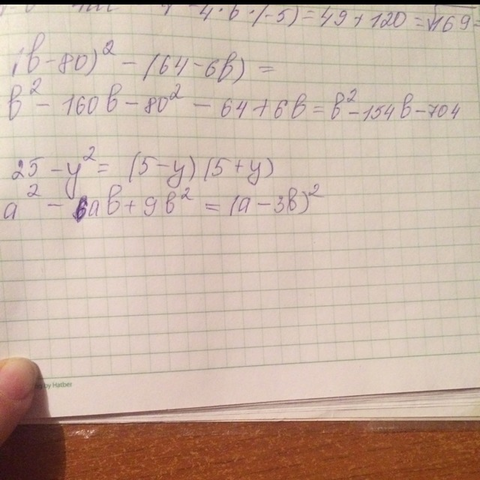 4 · в · (-5) = 49 + 120 = √169 =
(в - 80)² - (64 - 6в) =
в² - 160в - 80² - 64 + 6в = в² - 154в - 704
25 - y² = (5 - y)(5 + y)
a² - 6aв + 9в² = (a - 3в)²
by Hatber